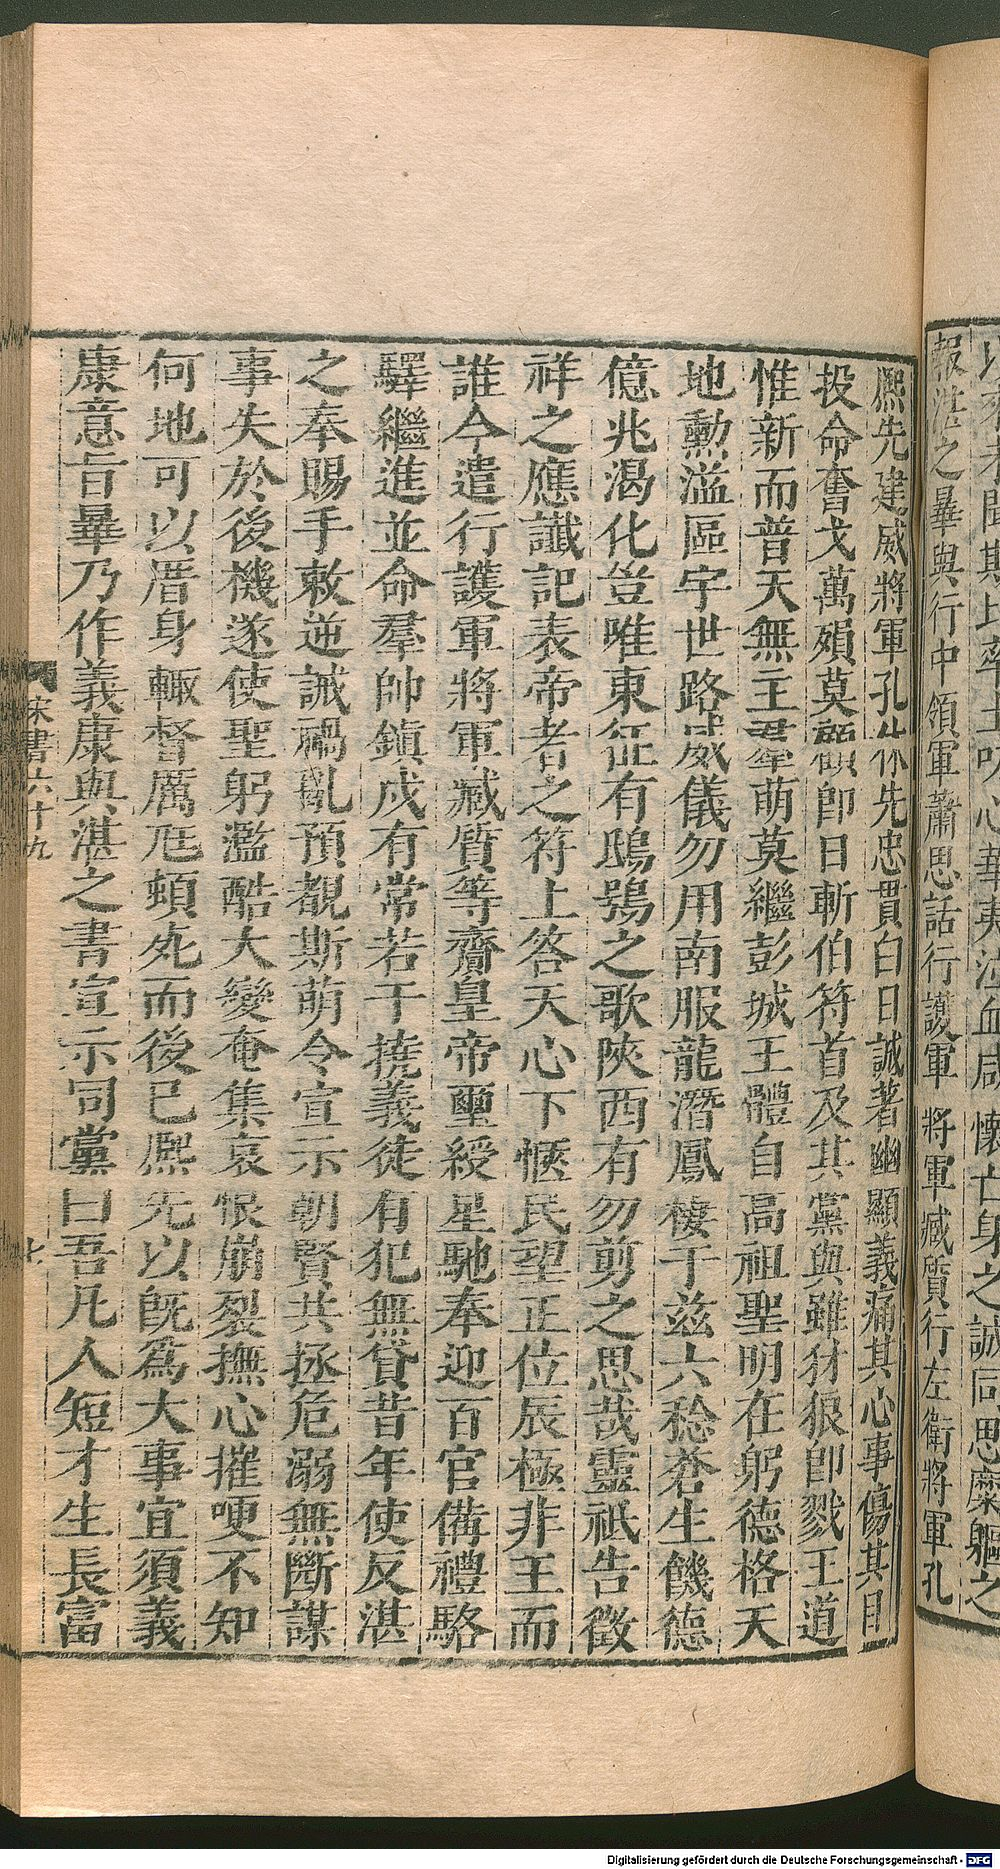 報湛之畢與行中領軍蕭思話行護軍將軍臧質行左衛將軍孔
熙先建威將軍孔休先忠貫白日誠著幽顯義痛其心事傷其目
投命奮戈萬殞莫顧即日斬伯符首及其黨與雖豺狼即戮王道
惟新而普天無主羣萌莫繼彭城王體自高祖聖明在躬德格天
地勳溢區宇世路威儀勿用南服龍潛鳳棲于茲六稔蒼生饑德
億兆渴化豈唯東征有鴟鴞之歌陝西有勿剪之思哉靈祇告徵
祥之應讖記表帝者之符上答天心下愜民望正位辰極非王而
誰今遣行護軍將軍臧質等齎皇帝璽綬星馳奉迎百官備禮駱
驛繼進並命羣帥鎮戍有常若干撓義徒有犯無貸昔年使反湛
之奉賜手敕逆誡禍亂預覩斯萌令宣示朝賢共拯危溺無斷謀
事失於後機遂使聖躬濫酷大變奄集哀恨崩裂撫心摧哽不知
何地可以厝身輙督厲尫頓死而後已熙先以既爲大事宜須義
康意旨畢乃作義康與湛之書宣示同黨曰吾凡人短才生長富
宋書六十九
Digitalisierung gefördert durch die Deutsche Forschungsgemeinschaft - DFG